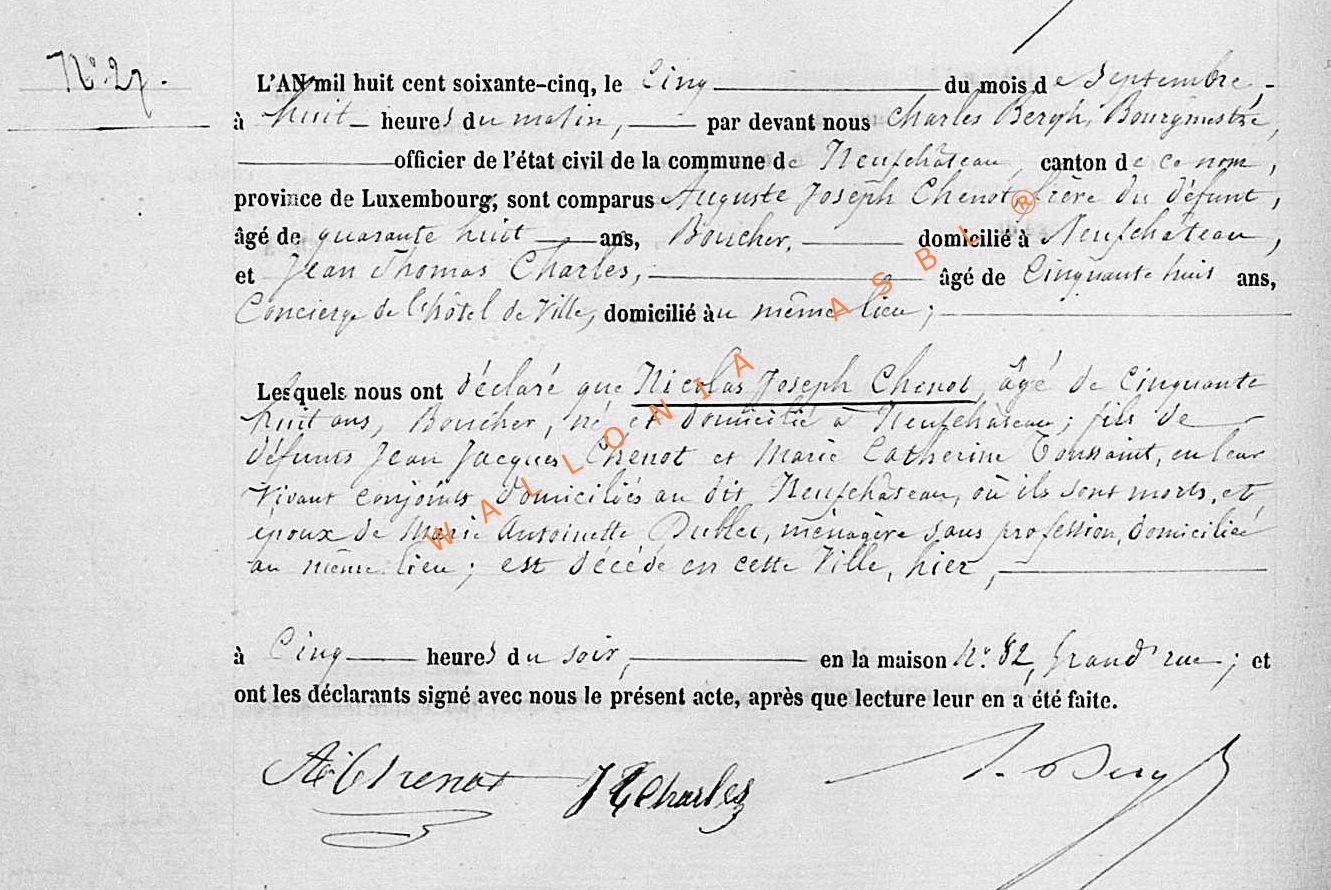 N° 27.
L'AN mil huit cent soixante-cinq, le Cinq du mois de Septembre,
à huit heures du matin, par devant nous Charles Bergh, Bourgmestre,
officier de l'état civil de la commune de Neufchâteau, canton de ce nom,
province de Luxembourg; sont comparus Auguste Joseph Chenot, frère du défunt,
âgé de quarante huit ans, Boucher, domicilié à Neufchâteau,
et Jean Thomas Charles, âgé de Cinquante huit ans,
Concierge de l'hôtel de Ville, domicilié au même lieu;
Lesquels nous ont déclaré que Nicolas Joseph Chenot, âgé de Cinquante
huit ans, Boucher, né et domicilié à Neufchâteau; fils de
défunts Jean Jacques Chenot et Marie Catherine Toussaint, en leur
vivant conjoints domiciliés au dit Neufchâteau, où ils sont morts, et
époux de Marie Antoinette ménagère sans profession, domiciliée
au même lieu; est décédé en cette Ville, hier,
à Cinq heures du soir, en la maison N° 82, Grand'rue; et
ont les déclarants signé avec nous le présent acte, après que lecture leur en a été faite.
A. Chenot JT Charles
WALLONIA ASBL ®